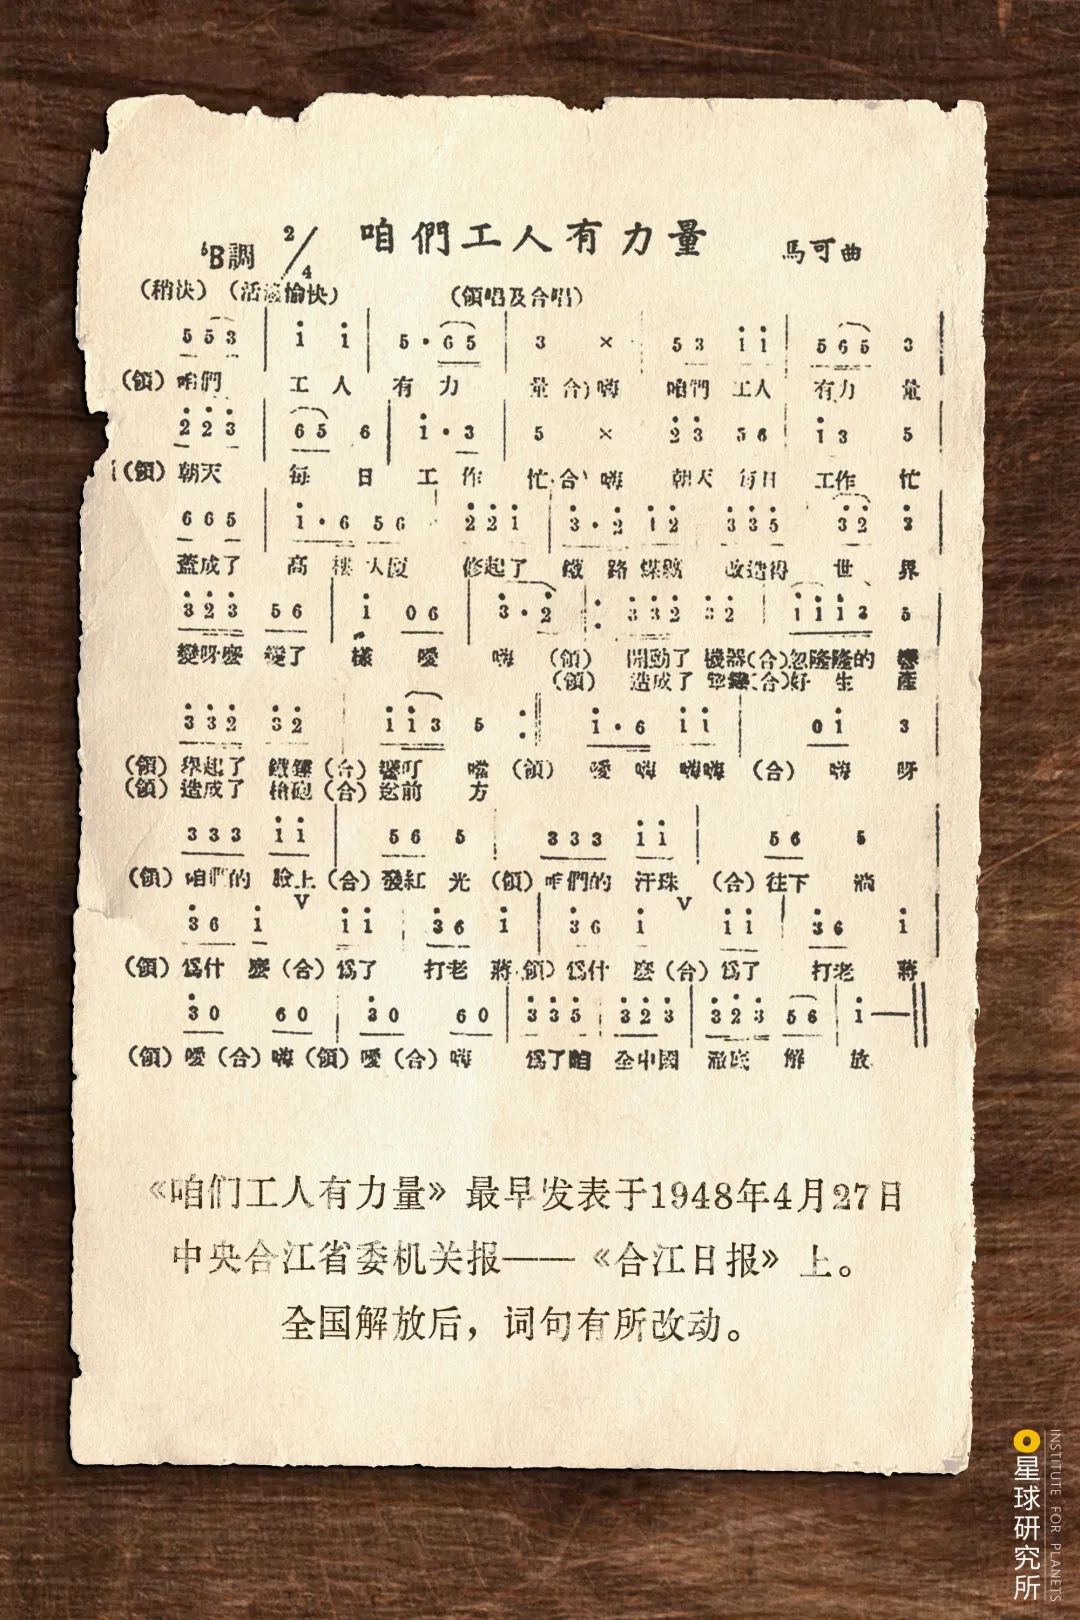 咱們工人有力量
♭B調 2/4 馬可曲
（稍決）（活潑愉快） （領唱及合唱）
5 5 3 | i i | 5 · 6 5 | 3 × | 5 3 i i | 5 6 5 3 |
（領）咱們 工人有力 量（合）嗨 咱們工人 有力 量
2 2 3 | 6 5 6 | i · 3 | 5 × | 2 3 5 6 | i 3 5
（領）朝天 每日工作 忙（合）嗨 朝天每日 工作 忙
6 6 5 | i · 6 5 6 | 2 2 i | 3 · 2 i 2 | 3 3 5 3 2 3
蓋成了 高樓大廈 修起了 鐵路煤礦 改造得 世界
3 2 3 5 6 | i 0 6 | 3 · 2 | : 3 3 2 3 2 | i i i 3 5
變呀麼變了 樣 噯 嗨 （領）開動了機器（合）忽隆隆的響
（領）造成了犂鏵（合）好生產
3 3 2 3 2 | i i 3 5 : | i · 6 i i | 0 i 3
（領）舉起了鐵錘（合）響叮噹（領）噯嗨嗨嗨（合）嗨呀
（領）造成了槍砲（合）送前方
3 3 3 i i | 5 6 5 | 3 3 3 i i | 5 6 5
（領）咱們的臉上（合）發紅光（領）咱們的汗珠（合）往下淌
V V
3 6 i i i | 3 6 i | 3 6 i i i | 3 6 i
（領）爲什麼（合）爲了打老蔣（領）爲什麼（合）爲了打老蔣
3 0 6 0 | 3 0 6 0 | 3 3 5 3 2 3 | 3 2 3 5 6 | i —
（領）噯（合）嗨（領）噯（合）嗨 爲了咱全中國澈底解放
《咱们工人有力量》最早发表于1948年4月27日
中央合江省委机关报——《合江日报》上。
全国解放后，词句有所改动。
星球研究所
INSTITUTE FOR PLANETS